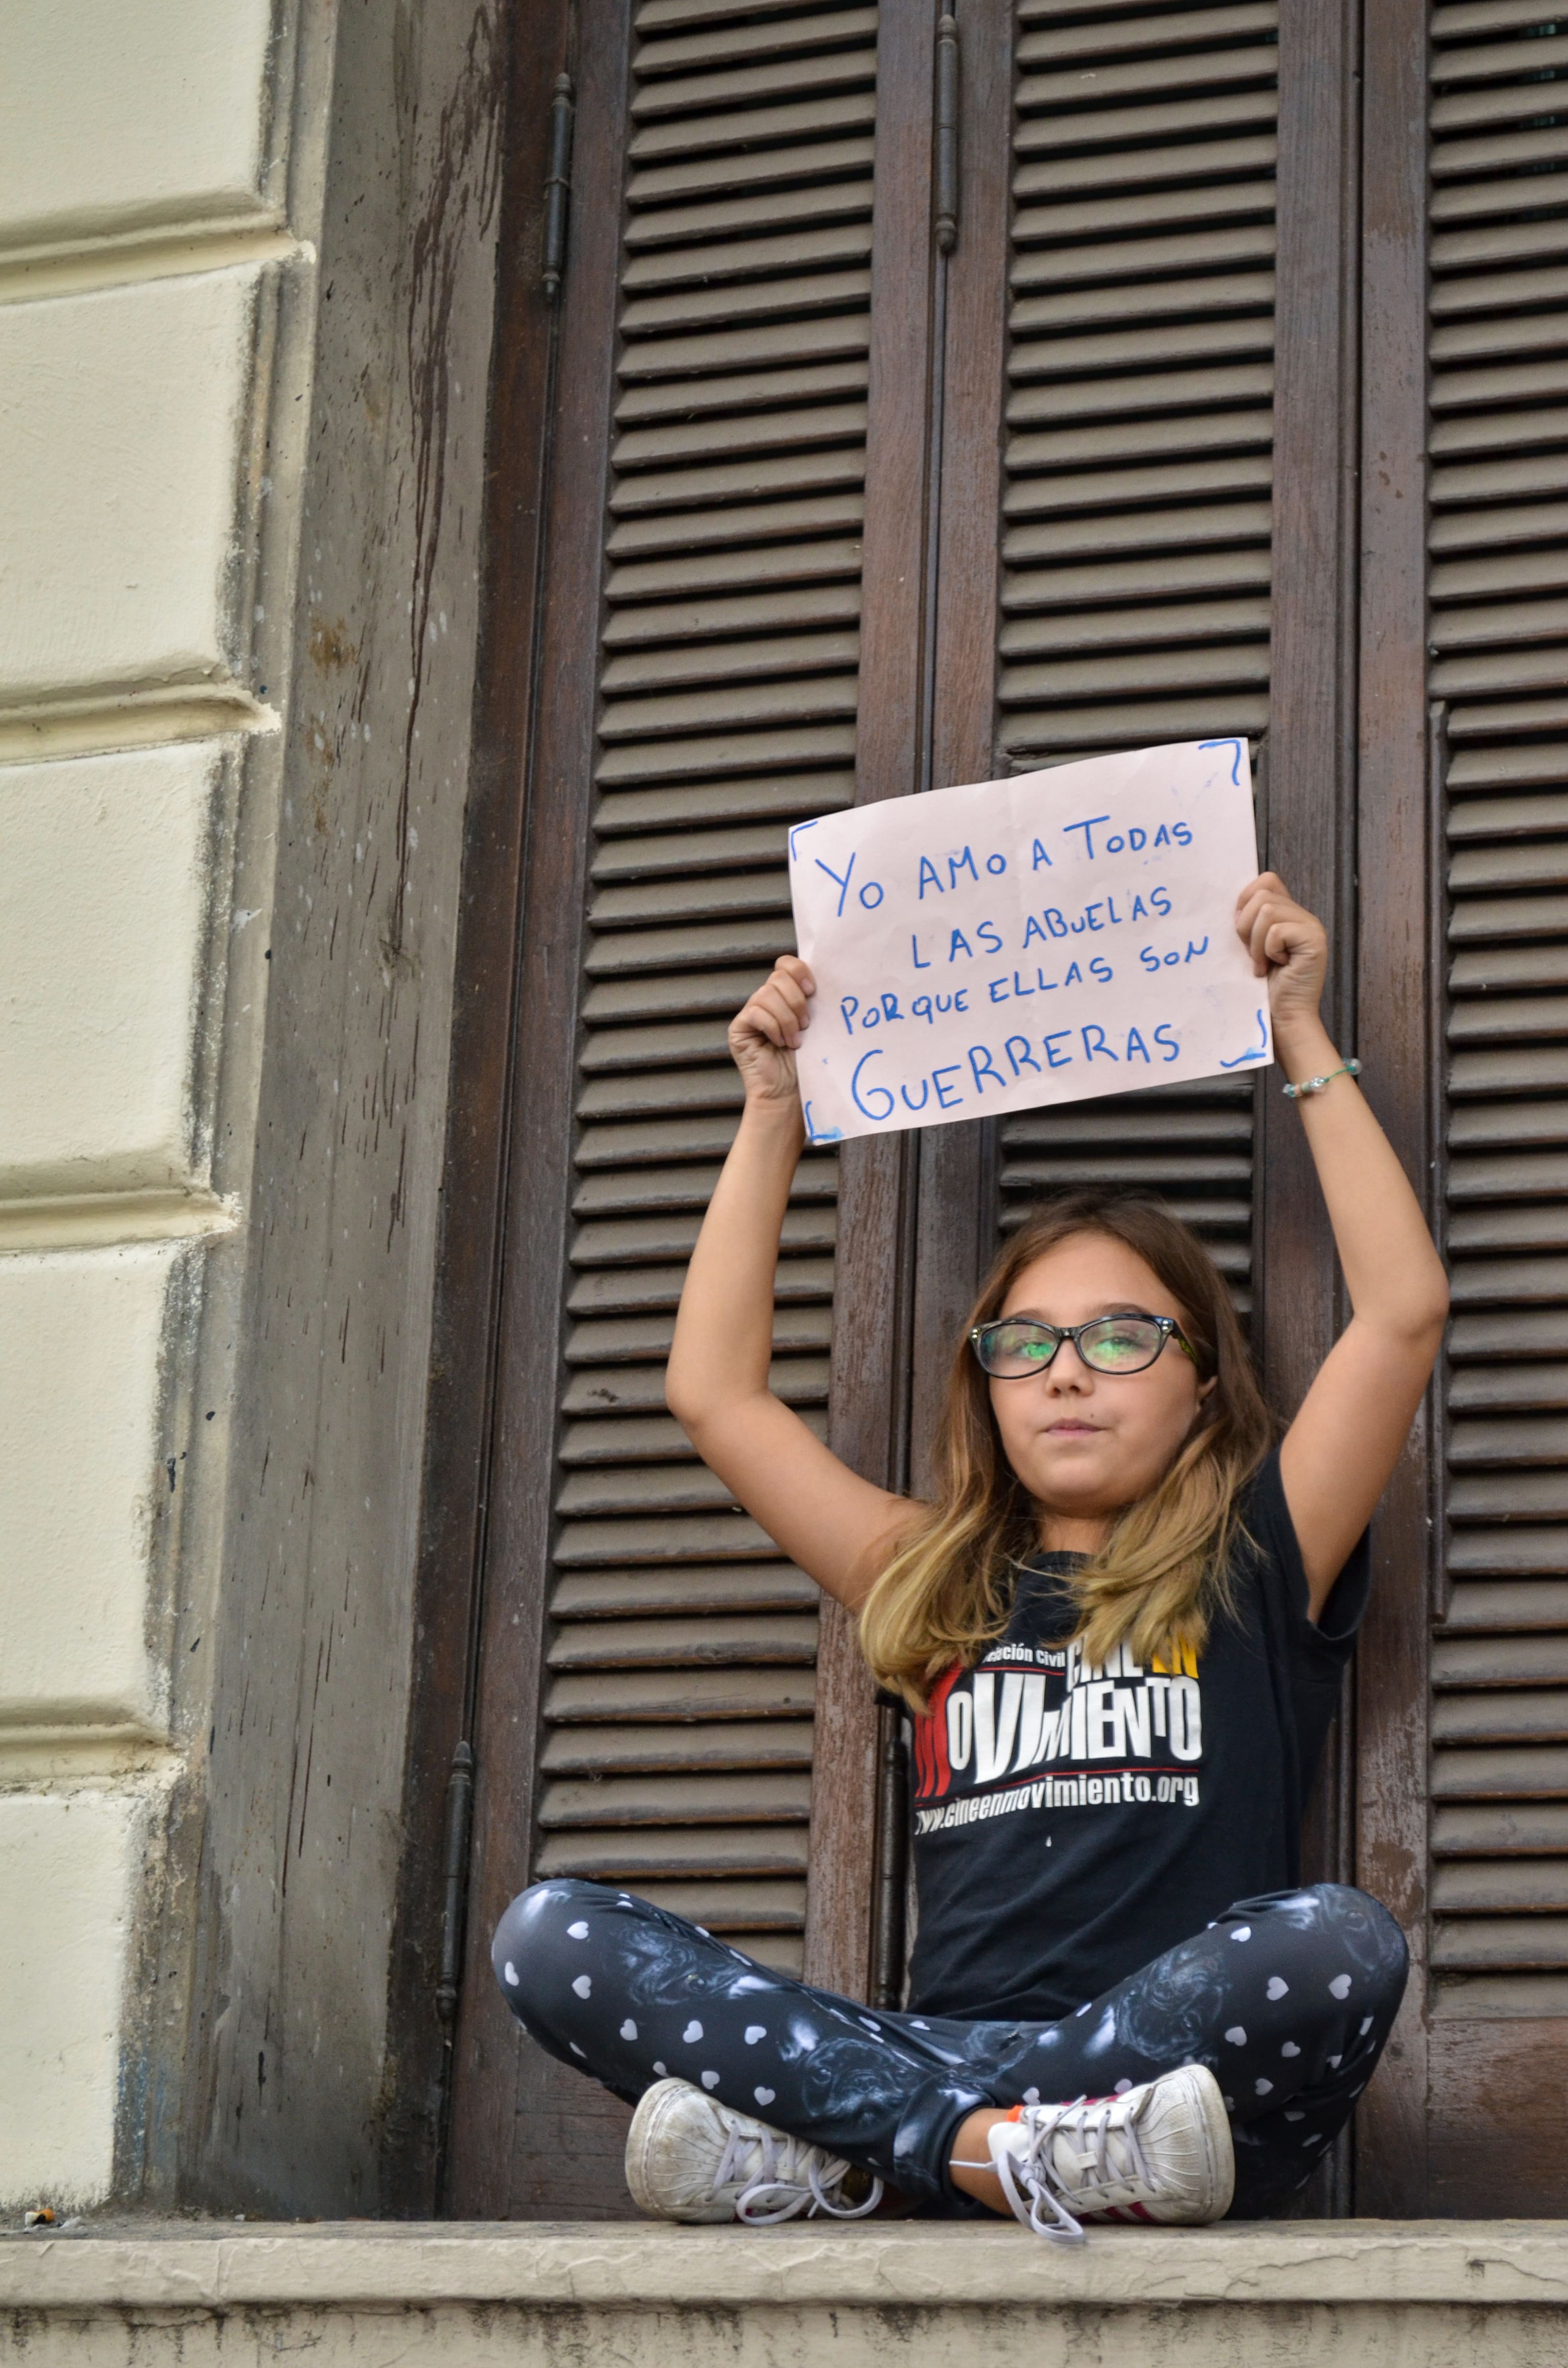 YO AMO A TODAS
LAS ABUELAS
PORQUE ELLAS SON
GUERRERAS
Civil
CINE EN
MOVIMIENTO
www.cineenmovimiento.org